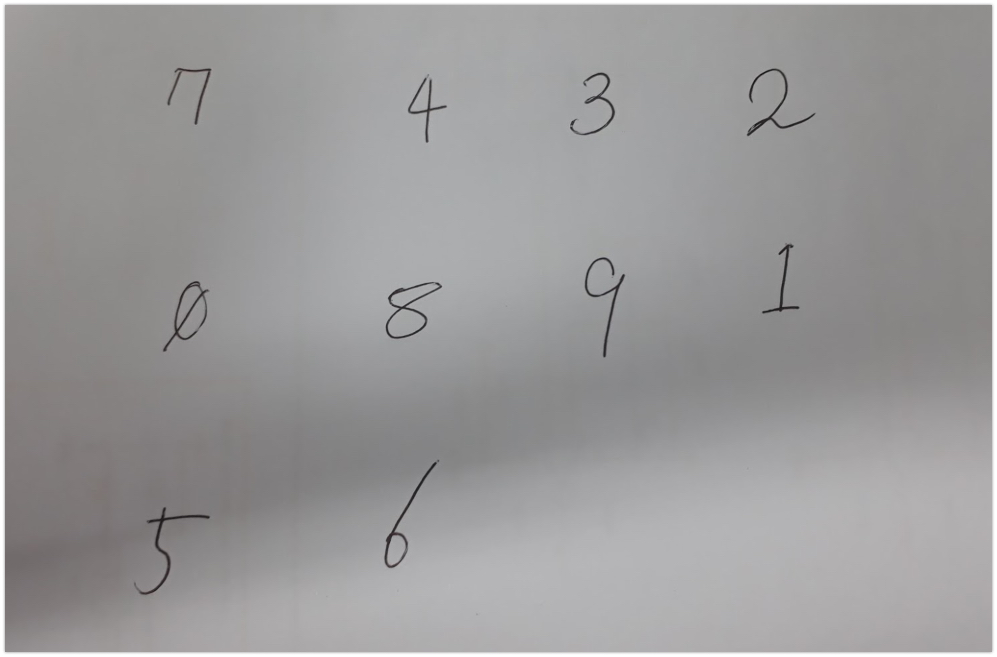 7 4 3 2
0 8 9 1
5 6